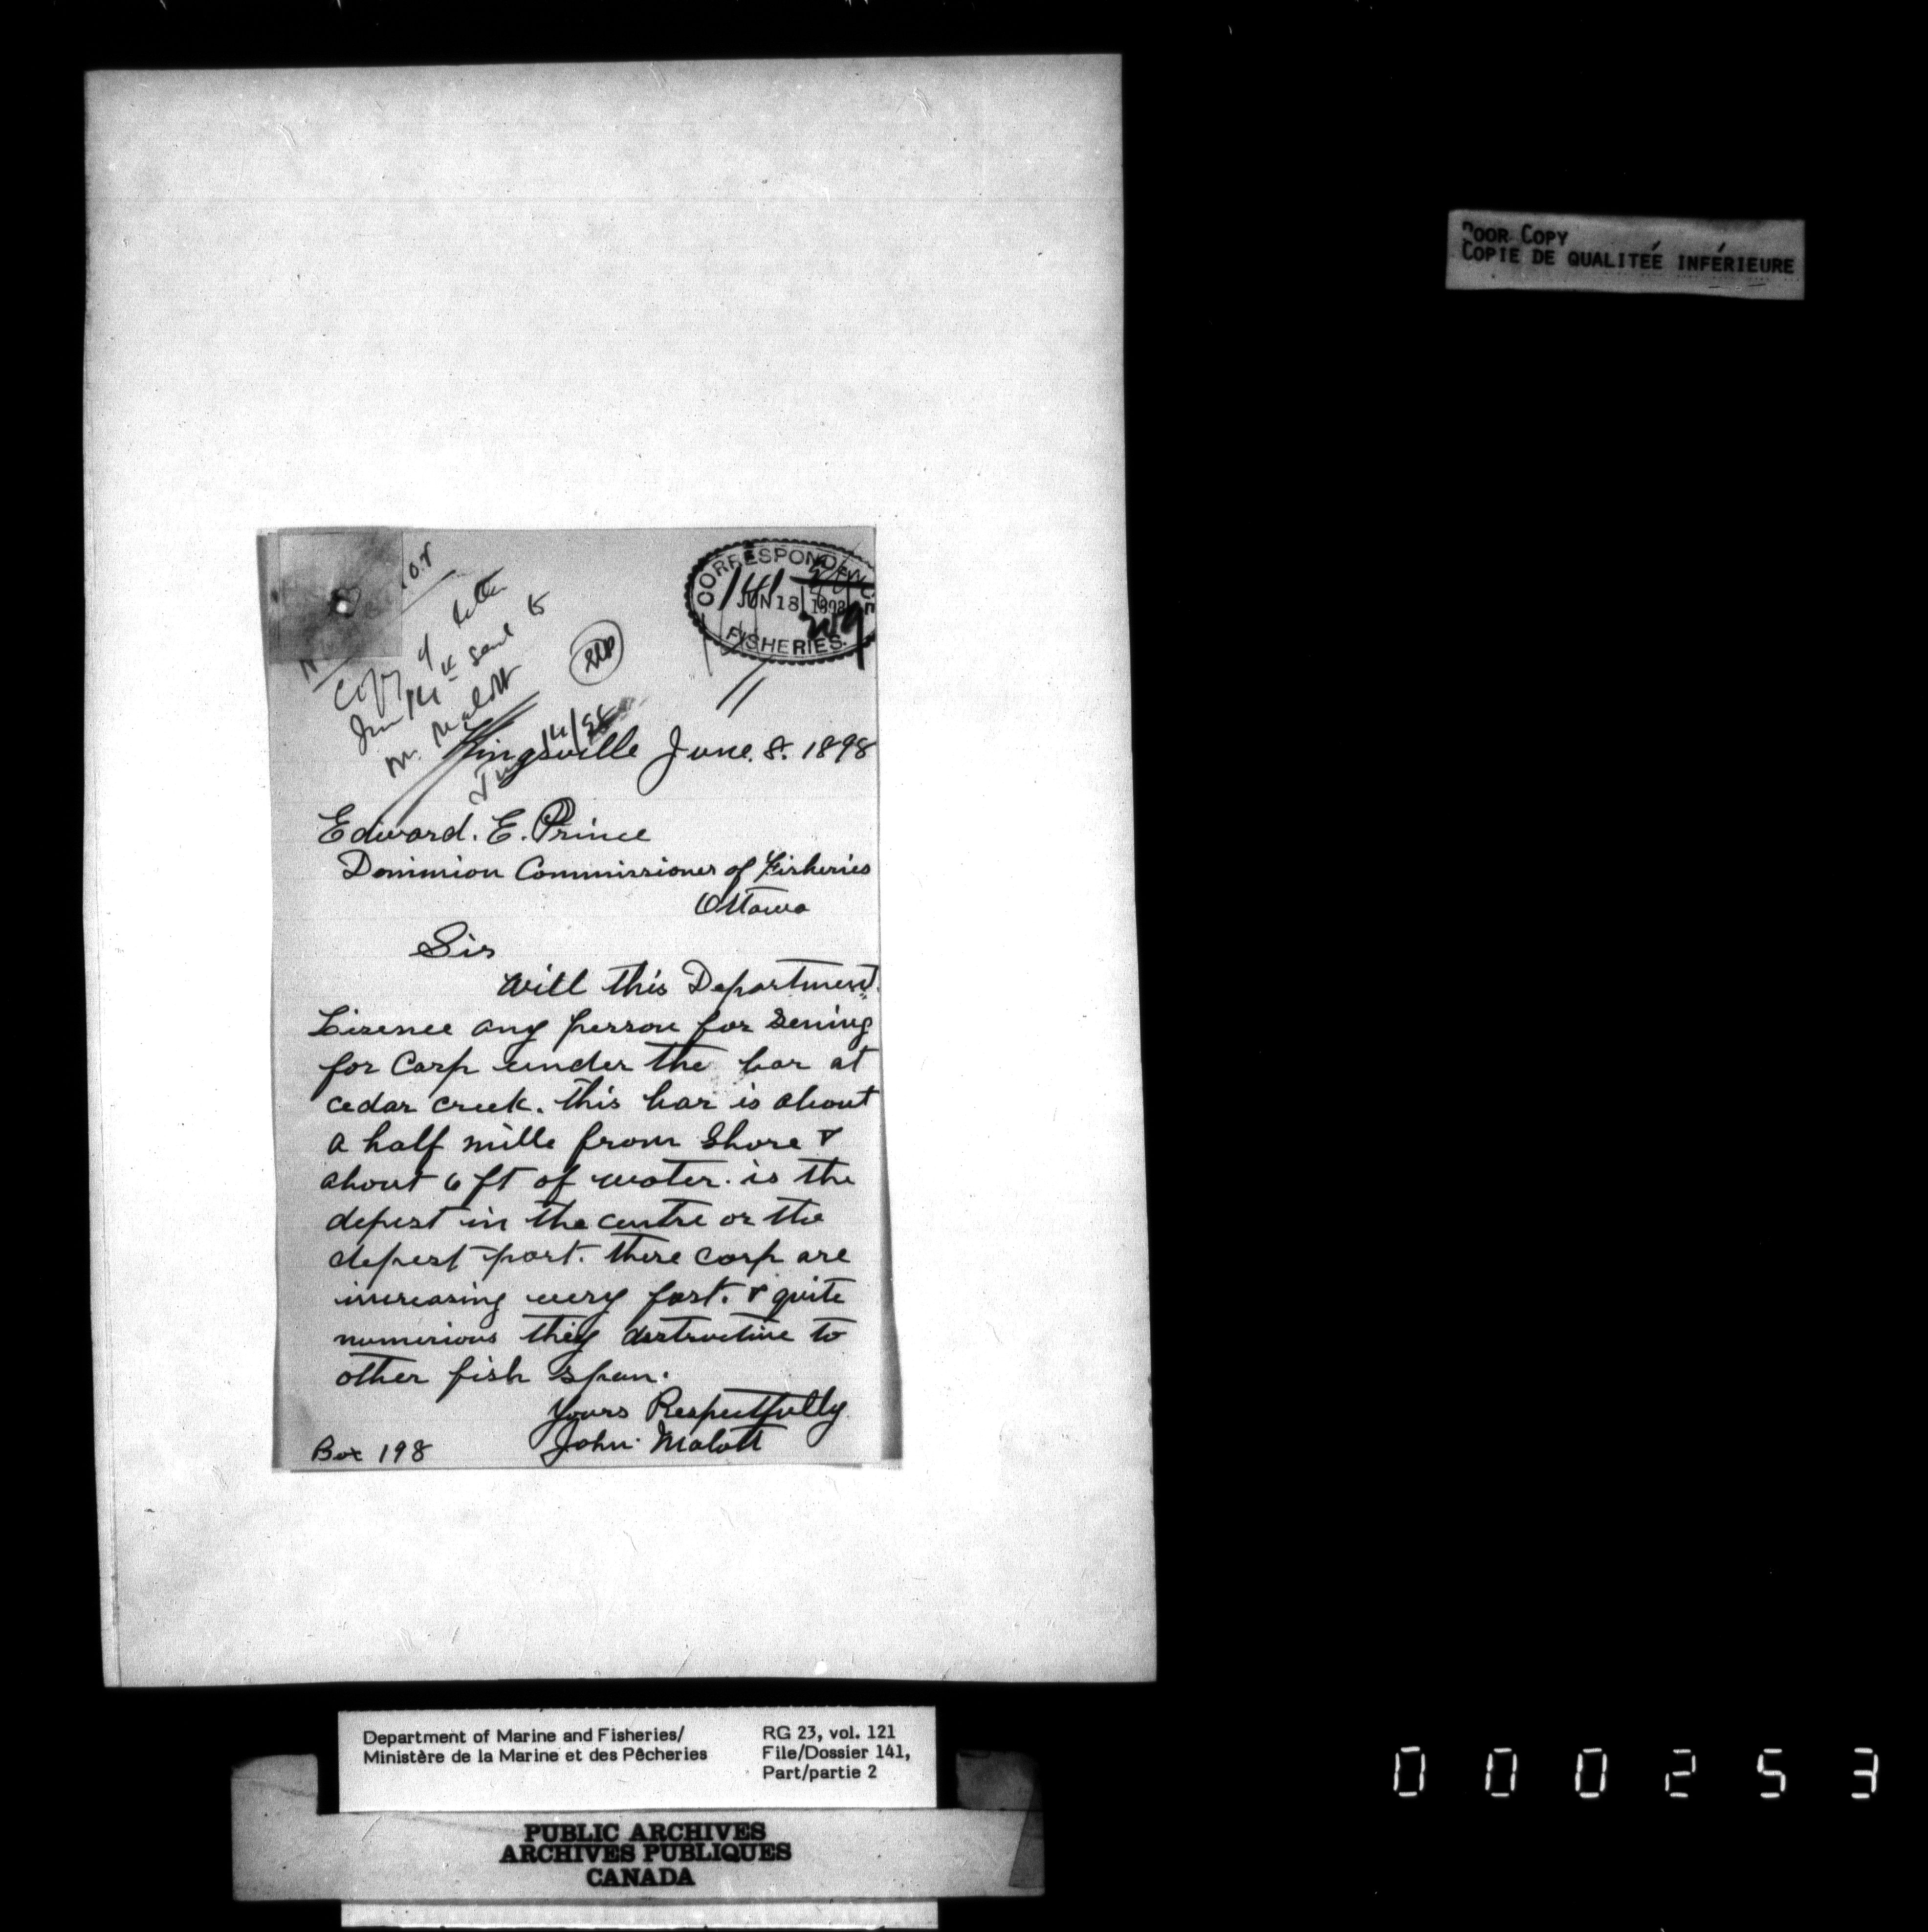 POOR COPY
COPIE DE QUALITEÉ INFÉRIEURE
CORRESPONDENCE
141
JUN 18 1898
FISHERIES.
Copy of letter
June 14th sent to
Mr. Malott
Kingsville June. 8. 1898
Edward. E. Prince
Dominion Commissioner of Fisheries
Ottawa
Sir
Will this Department
Lisence any person for Sening
for Carp under the bar at
cedar creek. this bar is about
a half mille from Shore &
about 6 ft of water. is the
depest in the centre or the
depest part. these carp are
increasing very fast. & quite
numerious they destructive to
other fish span.
Yours Respectfully
John. Malott
Box 198
Department of Marine and Fisheries/
Ministère de la Marine et des Pêcheries
RG 23, vol. 121
File/Dossier 141,
Part/partie 2
PUBLIC ARCHIVES
ARCHIVES PUBLIQUES
CANADA
000253